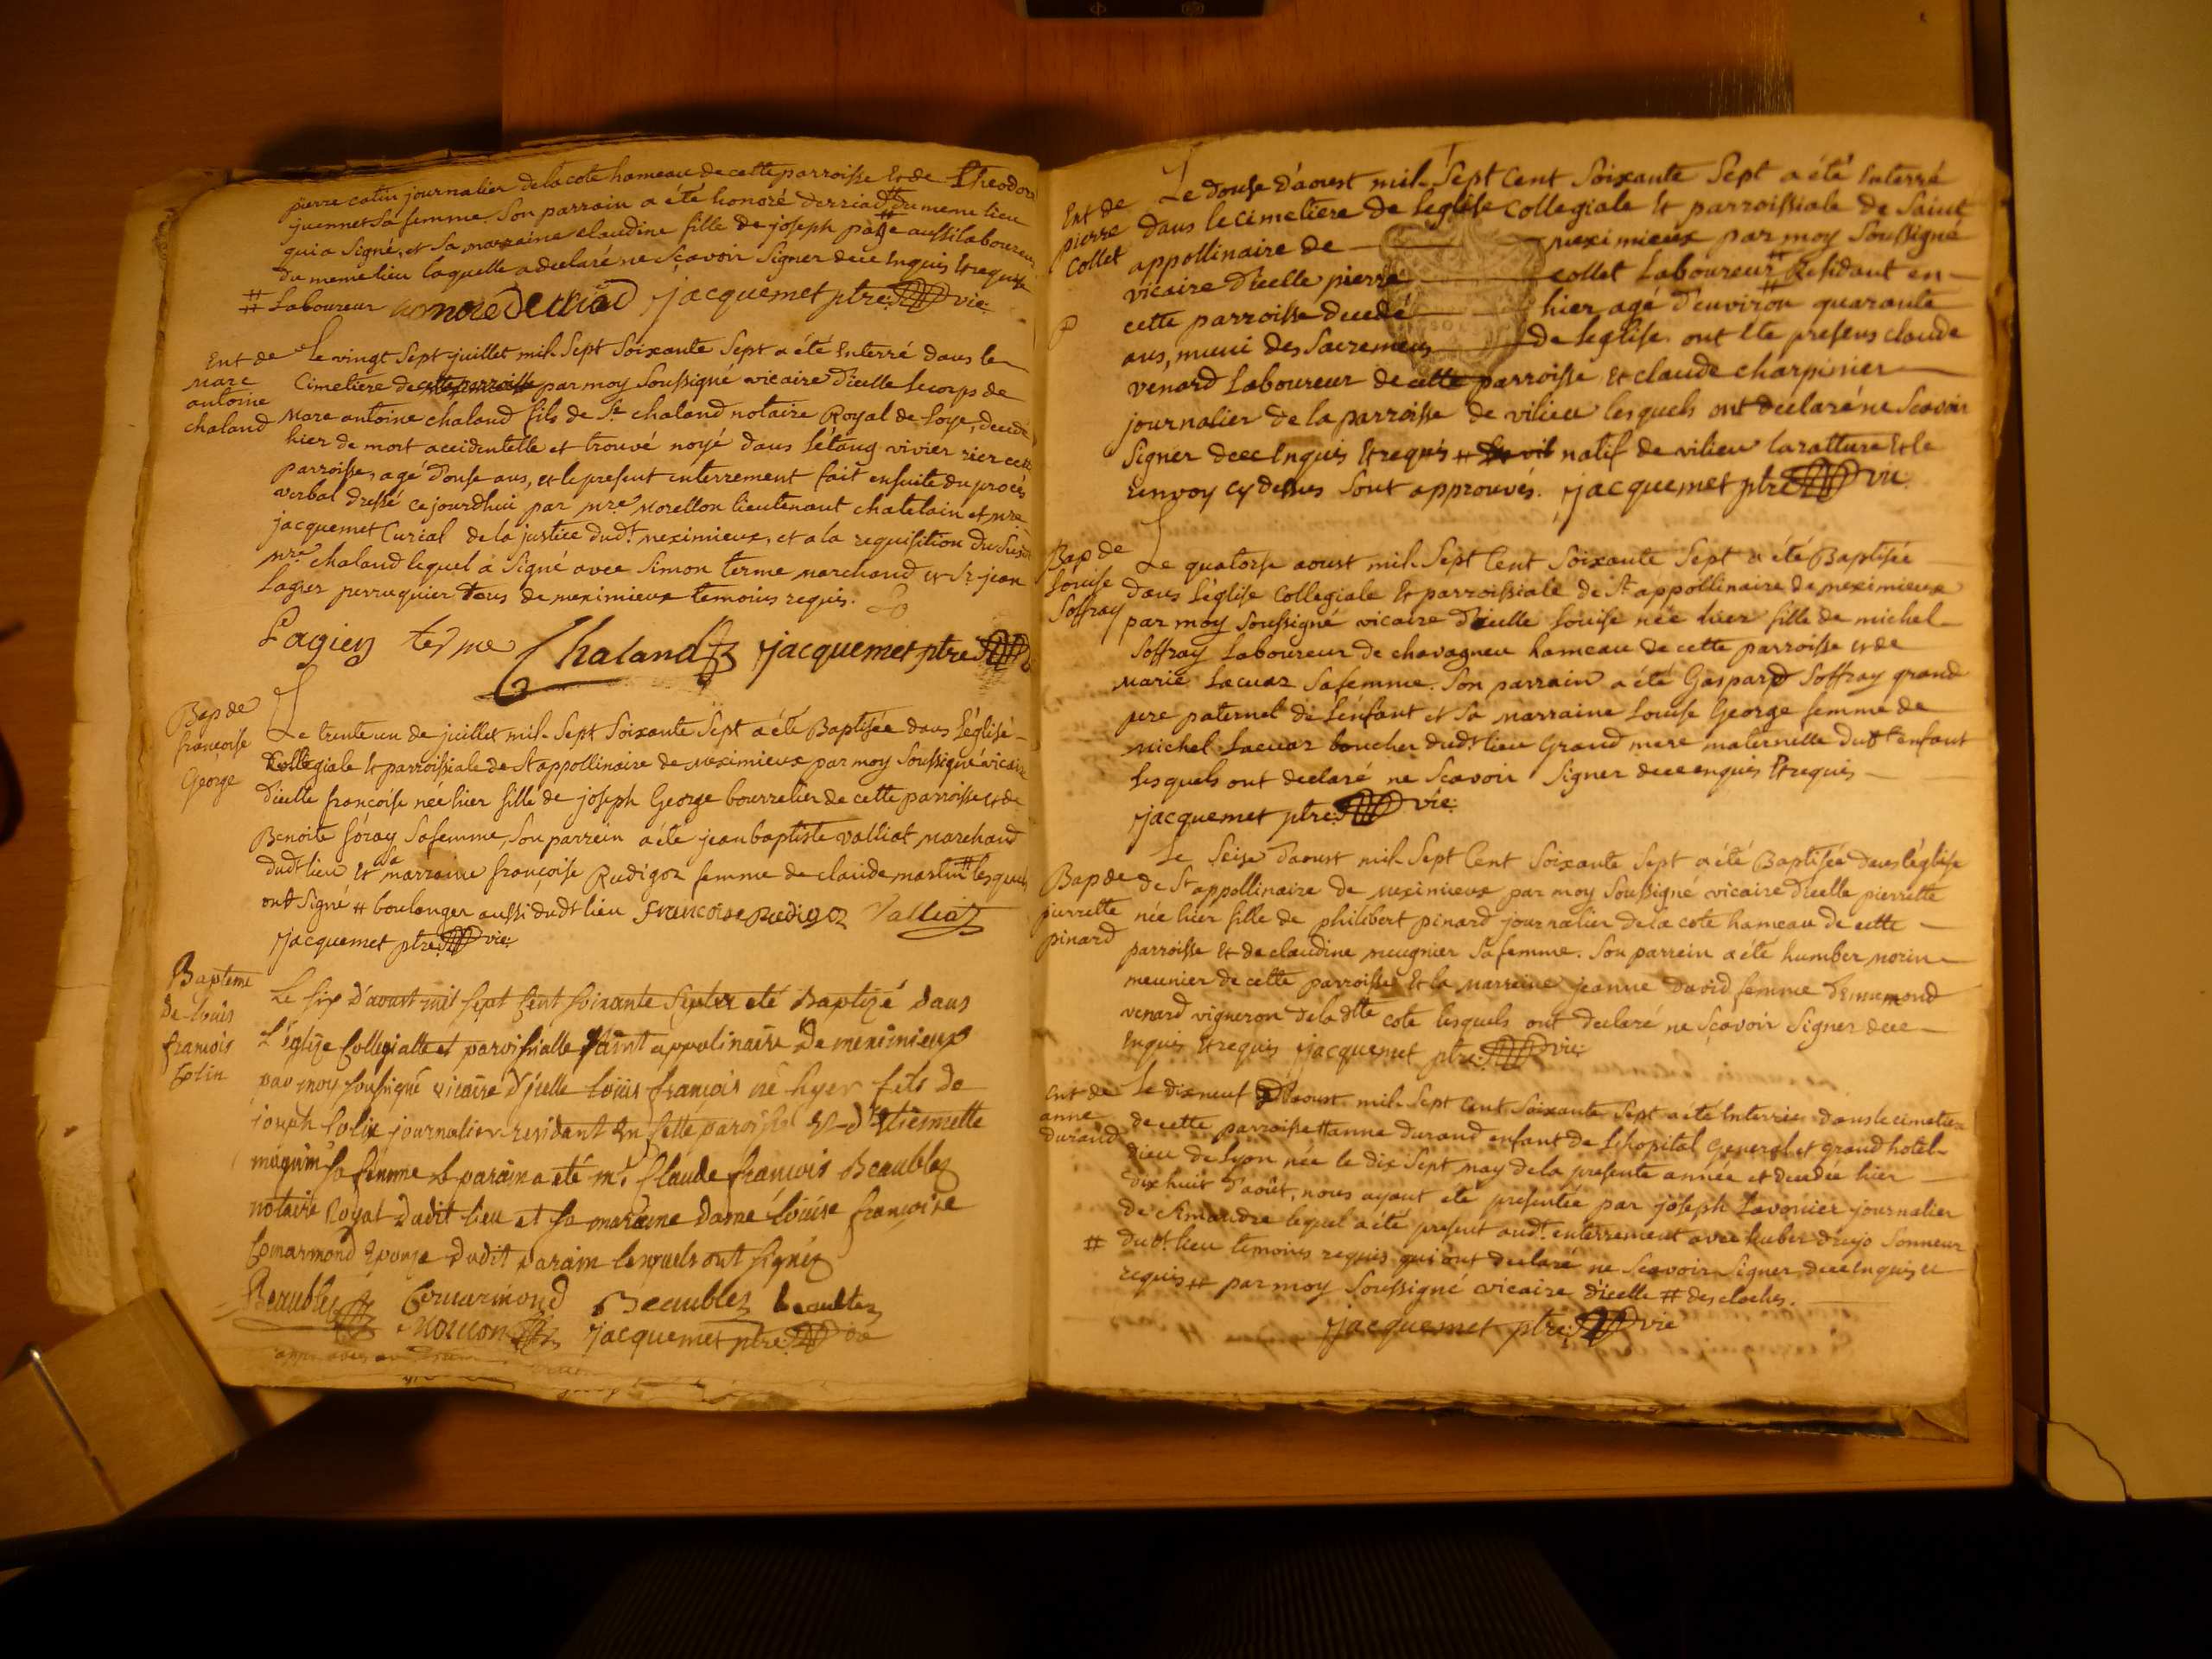 pierre catin journalier de la cote hameau de cette parroisse Et de Theodore
juennet sa femme. Son parrain a été honoré derriad # du meme lieu
qui a signé, et sa maraine claudine fille de joseph page aussi laboureur
du meme lieu laquelle a declaré ne sçavoir signer dece Enquis Et requise
# Laboureur honoré derriad jacquemet ptre vic.
Ent de
Marc
antoine
chaland
Le vingt Sept juillet mil Sept Soixante Sept a été Enterré dans le
Cimetiere de cette parroisse par moy Soussigné vicaire d'icelle le corps de
Marc antoine chaland fils de Sr chaland notaire Royal de Loye, decedé
hier de mort accidentelle et trouvé noyé dans l'étang vivier rier cette
parroisse, agé d'ouse ans, et le present enterrement fait ensuite du procés
verbal dressé ce jourdhui par Mre Morellon lieutenant chatelain et Mre
jacquemet Curial de la justice dudt meximieux, et a la requisition du susdt
Mre chaland lequel a Signé avec Simon terme marchand et Sr jean
Lagier perruquier tous de meximieux temoins requis.
Lagier terme Chaland jacquemet ptre
Bap de
françoise
George
Le trente un de juillet mil Sept Soixante Sept a été Baptisée dans l'église
Collegiale Et parroissiale de St appollinaire de Meximieux par moy Soussigné vicaire
d'icelle françoise née hier fille de joseph George bourrelier de cette parroisse et de
Benoite foray Sa femme, Son parrein a été jean baptiste valliat Marchand
dudt lieu Et sa marraine françoise Rudigoz femme de claude martin # lesquels
ont Signé # boulanger aussi dudt lieu francoise Rudigoz Valliat
jacquemet ptre vic.
Bapteme
de louis
francois
Colin
Le six d'aoust mil sept Cent soixante Sept a été Baptizé dans
L'églize Collegialle et paroissialle Saint appolinaire De meximieux
par moy soussigné vicaire D'jcelle louis françois né hyer fils de
joseph Colin journalier residant En Cette paroisse Et d'Etiennette
sa femme le parain a été Mr. Claude francois Beaublez
notaire Royal dudit lieu et sa maraine dame louise francoise
Cormarmond Epouse dudit parain lesquels ont signéz
Beaublez Cormarmond Beaublez
jacquemet ptre vic
Ent de
pierre
Collet
Le douse d'aoust mil Sept Cent Soixante Sept a été Enterré
dans le cimetiere de l'eglise Collegiale Et parroissiale de Saint
appollinaire de meximieux par moy Soussigné
vicaire d'icelle pierre collet Laboureur # Residant en
cette parroisse decedé hier, agé d'environ quarante
ans, muni des Sacremens de l'eglise. ont Ete presens claude
venard Laboureur de cette parroisse Et claude charpinier
journalier de la parroisse de vilieu lesquels ont declaré ne Scavoir
Signer dece Enquis Et requis # natif de vilieu la ratture Et le
renvoy cy dessus Sont approuvés. jacquemet ptre vic.
Bap de
Louise
Soffray
Le quatorse aoust mil Sept Cent Soixante Sept a été Baptisée
dans l'église Collegiale Et parroissiale de St appollinaire de meximieux
par moy Soussigné vicaire d'icelle Louise née hier fille de michel
Soffray Laboureur de chavagneu hameau de cette parroisse et de
Marie Lacuaz Sa femme. Son parrain a été Gaspard Soffray grand
pere paternel de l'enfant et Sa Marraine Louise George femme de
Michel Lacuaz boucher dudt lieu Grand mere maternelle dudt enfant
lesquels ont declaré ne Scavoir Signer dece enquis Et requis
jacquemet ptre vic.
Bap de
pierrette
pinard
Le Seise d'aoust mil Sept Cent Soixante Sept a été Baptisée dans l'église
de St appollinaire de Meximieux par moy Soussigné vicaire d'icelle pierrette
née hier fille de philibert pinard journalier de la cote hameau de cette
parroisse Et de claudine mugnier Sa femme. Son parrein a été humber morin
meunier de cette parroisse Et la Marreine jeanne David femme d'Enemond
venard vigneron de la dtte cote lesquels ont declaré ne Sçavoir Signer dece
Enquis Et requis jacquemet ptre vic.
Ent de
anne
durand
Le dix neuf d'aoust mil Sept Cent Soixante Sept a été Enterrée dans le cimetiere
de cette parroisse # anne durand enfant de l'hopital General et grand hotel
dieu de Lyon née le dix Sept may de la presente année et decedée hier
dix huit d'août, nous ayant été presentée par joseph Lavonier journalier
de Simandre lequel a été present audt. enterrement avec huber drujo Sonneur
# dudt. lieu temoins requis qui ont declaré ne Scavoir Signer dece Enquis et
requis # par moy Soussigné vicaire d'icelle # des cloches.
jacquemet ptre vic